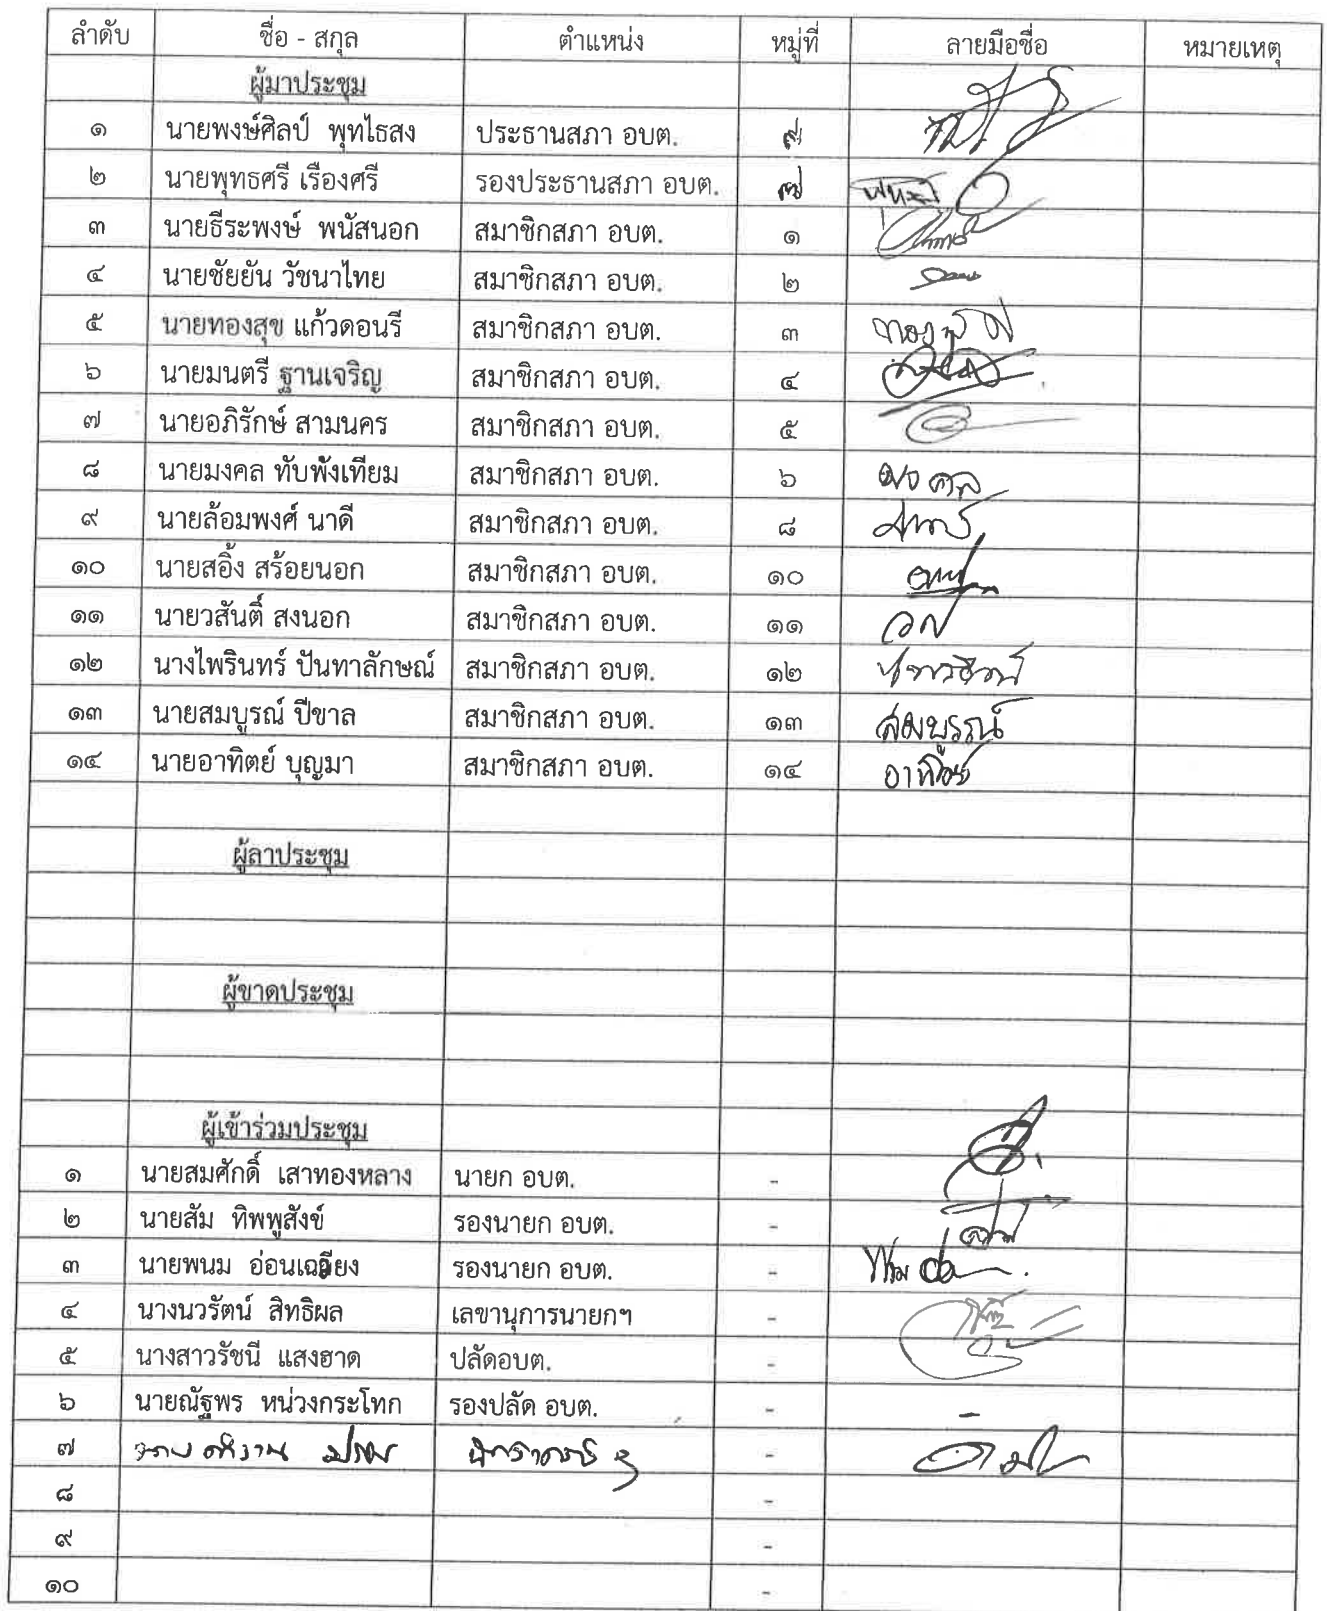 ลำดับ ชื่อ - สกุล ตำแหน่ง หมู่ที่ ลายมือชื่อ หมายเหตุ
ผู้มาประชุม
๑ นายพงษ์ศิลป์ พุทไธสง ประธานสภา อบต. ๙
๒ นายพุทธศรี เรืองศรี รองประธานสภา อบต. ๗
๓ นายธีระพงษ์ พนัสนอก สมาชิกสภา อบต. ๑
๔ นายชัยยัน วัชนาไทย สมาชิกสภา อบต. ๒
๕ นายทองสุข แก้วดอนรี สมาชิกสภา อบต. ๓
๖ นายมนตรี ฐานเจริญ สมาชิกสภา อบต. ๔
๗ นายอภิรักษ์ สามนคร สมาชิกสภา อบต. ๕
๘ นายมงคล ทับพังเทียม สมาชิกสภา อบต. ๖ มงคล
๙ นายล้อมพงศ์ นาดี สมาชิกสภา อบต. ๘
๑๐ นายสอิ้ง สร้อยนอก สมาชิกสภา อบต. ๑๐
๑๑ นายวสันติ์ สงนอก สมาชิกสภา อบต. ๑๑
๑๒ นางไพรินทร์ ปันทาลักษณ์ สมาชิกสภา อบต. ๑๒
๑๓ นายสมบูรณ์ ปีขาล สมาชิกสภา อบต. ๑๓ สมบูรณ์
๑๔ นายอาทิตย์ บุญมา สมาชิกสภา อบต. ๑๔ อาทิตย์
ผู้ลาประชุม
ผู้ขาดประชุม
ผู้เข้าร่วมประชุม
๑ นายสมศักดิ์ เสาทองหลาง นายก อบต. -
๒ นายสัม ทิพพูสังข์ รองนายก อบต. -
๓ นายพนม อ่อนเฉวียง รองนายก อบต. -
๔ นางนวรัตน์ สิทธิผล เลขานุการนายกฯ -
๕ นางสาวรัชนี แสงฮาด ปลัดอบต. -
๖ นายณัฐพร หน่วงกระโทก รองปลัด อบต. -
๗ -
๘ -
๙ -
๑๐ -